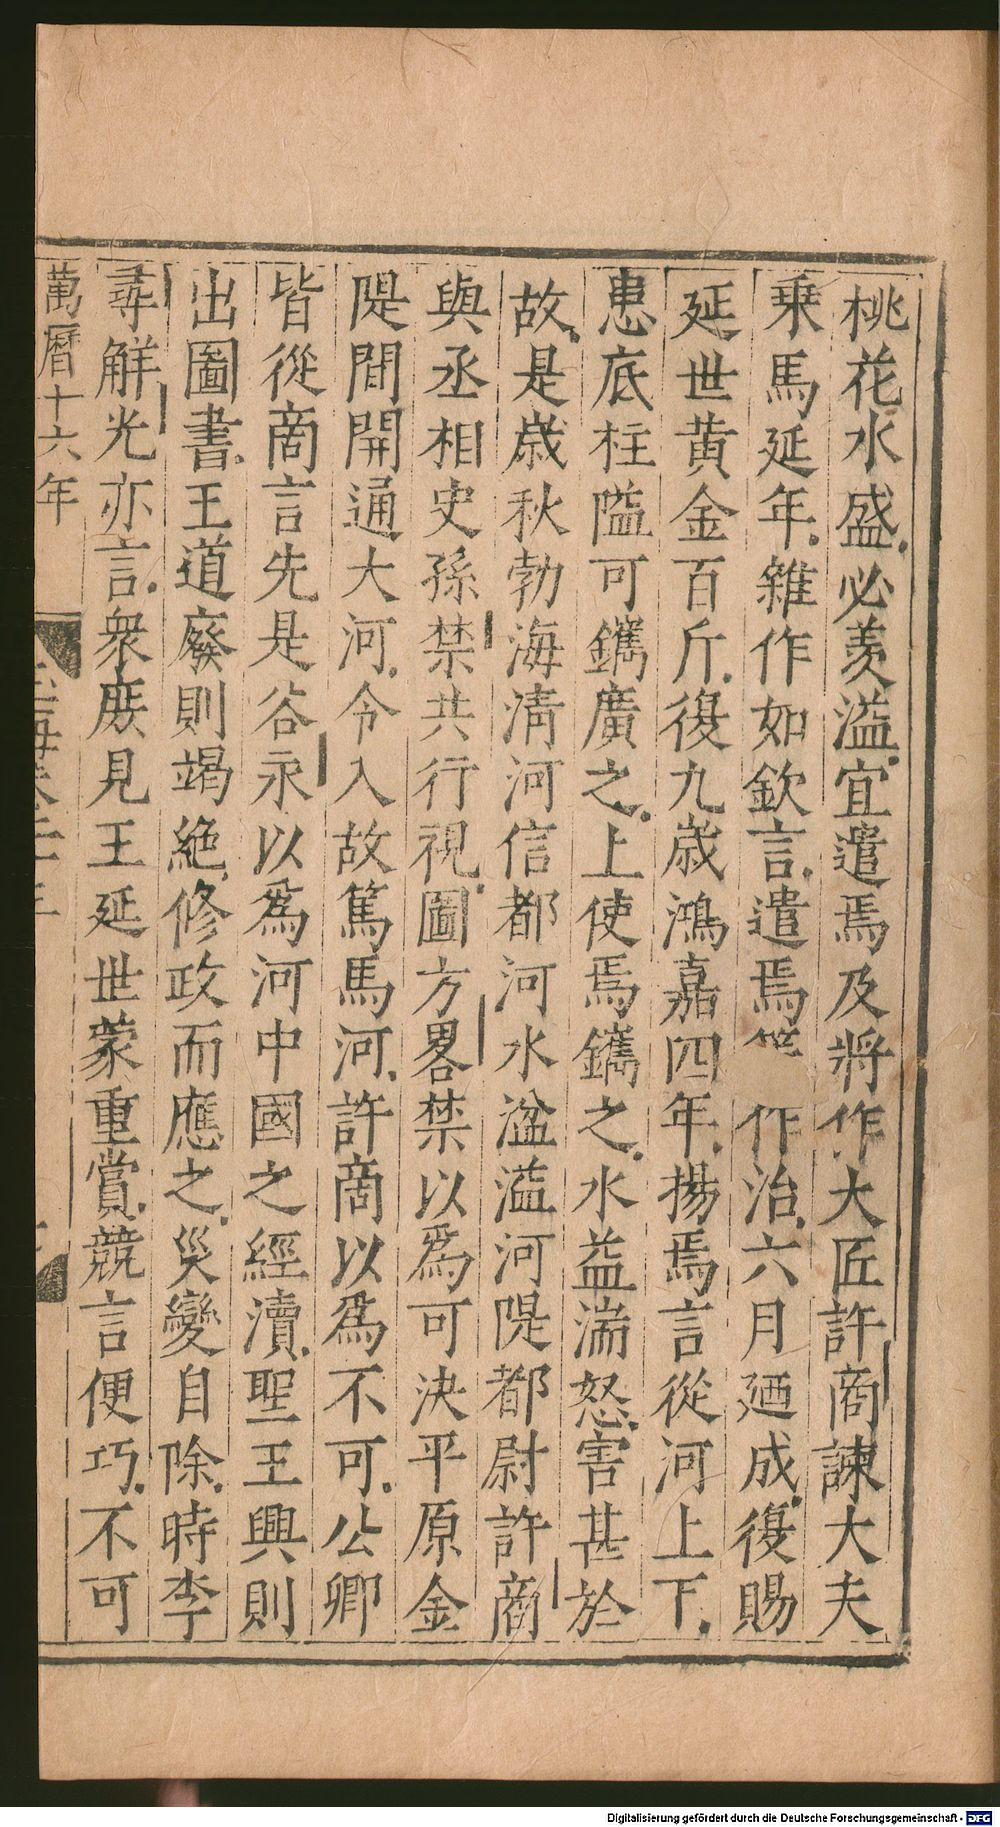 桃花水盛必羨溢宜遣焉及將作大匠許商諫大夫
乗馬延年雜作如欽言遣焉 作治六月廼成復賜
延世黄金百斤復九歲鴻嘉四年楊焉言從河上下
患底柱隘可鐫廣之上使焉鐫之水益湍怒害甚於
故是歲秋勃海清河信都河水湓溢河隄都尉許商
與丞相史孫禁共行視圖方畧禁以爲可決平原金
隄間開通大河令入故篤馬河許商以爲不可公卿
皆從商言先是谷永以爲河中國之經瀆聖王興則
出圖書王道廢則竭絶修政而應之災變自除時李
尋解光亦言衆庶見王延世蒙重賞競言便巧不可
萬曆十六年
Digitalisierung gefördert durch die Deutsche Forschungsgemeinschaft - DFG